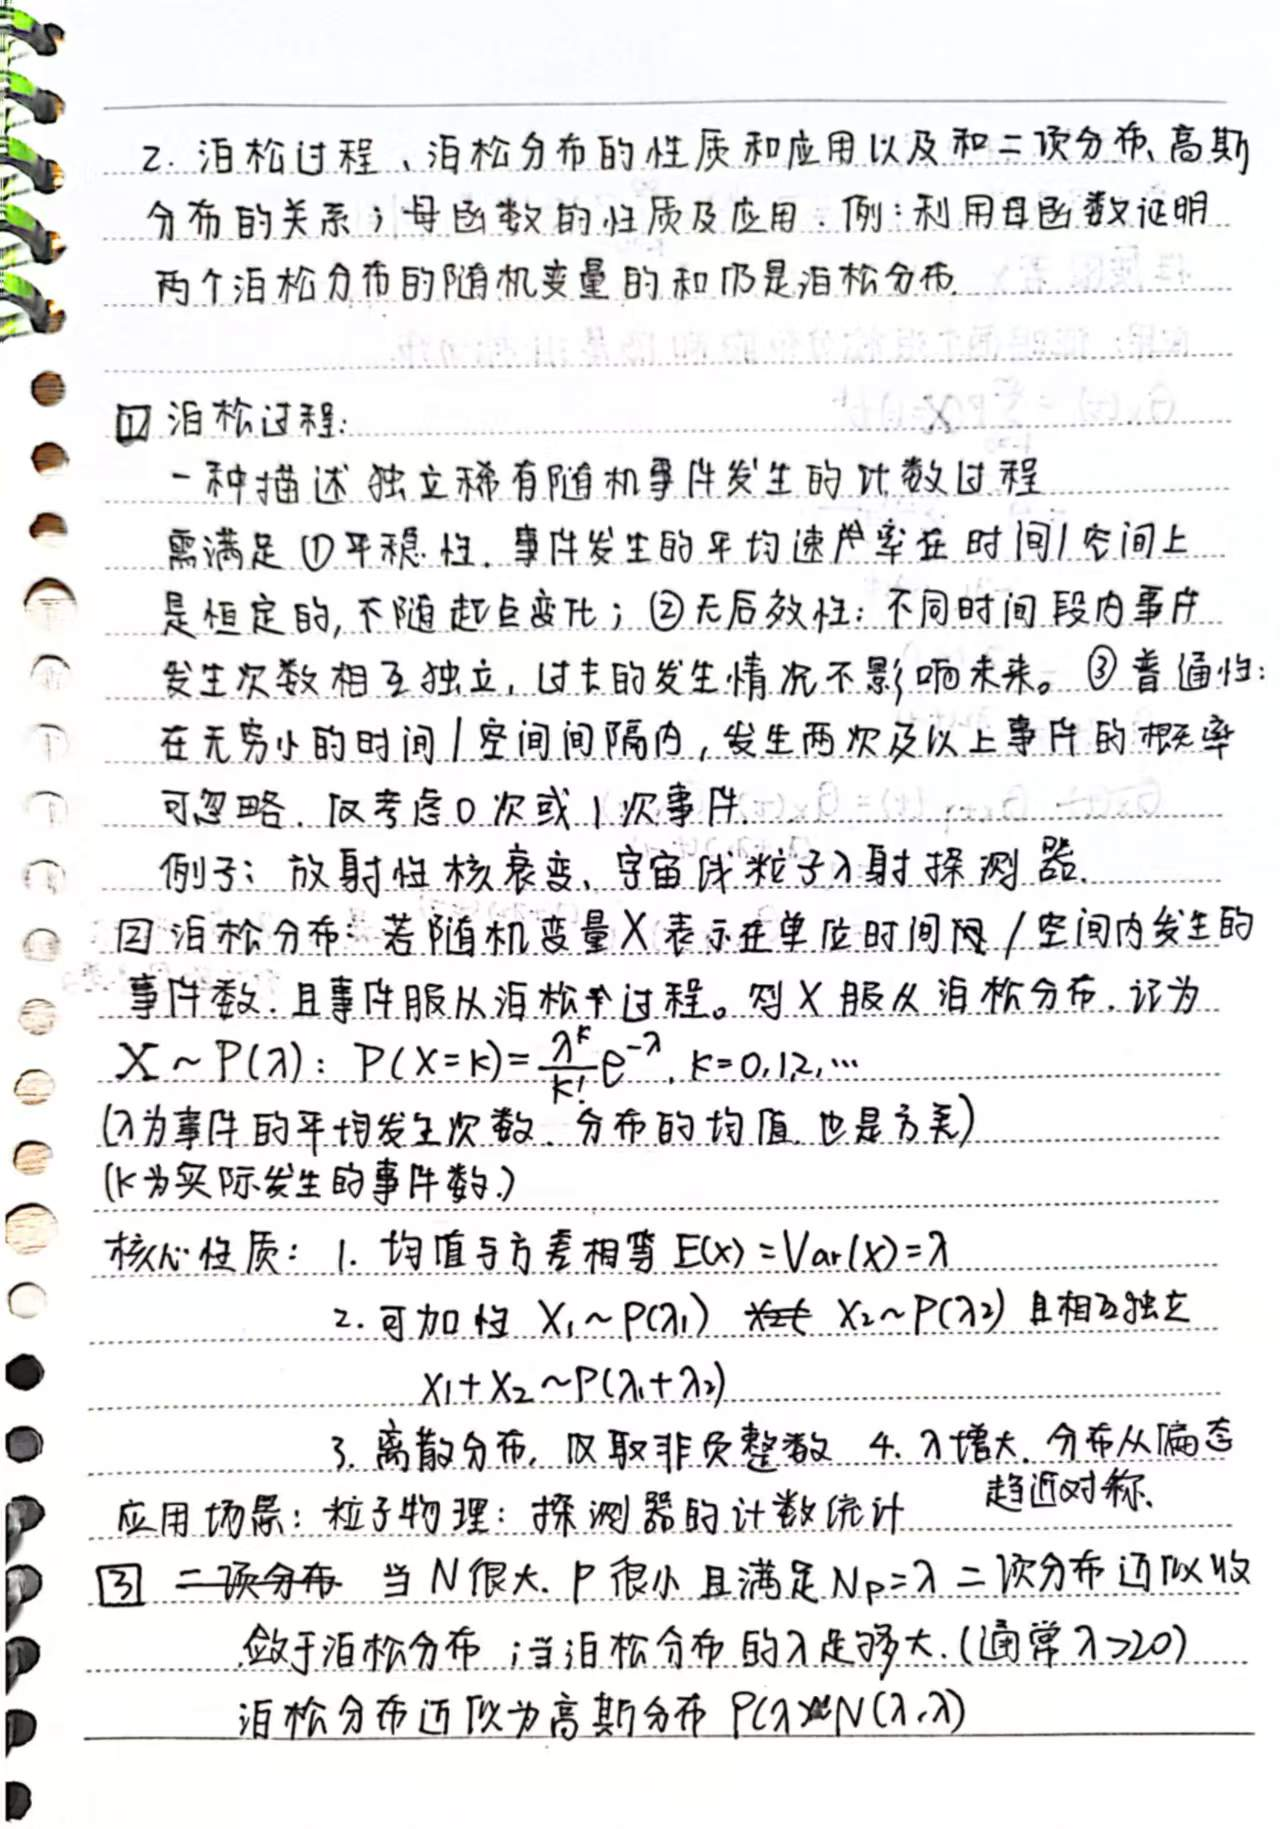 2. 泊松过程、泊松分布的性质和应用以及和二项分布、高斯
分布的关系；母函数的性质及应用. 例：利用母函数证明
两个泊松分布的随机变量的和仍是泊松分布.
1 泊松过程:
一种描述独立稀有随机事件发生的计数过程
需满足 ①平稳性. 事件发生的平均速率在时间/空间上
是恒定的, 不随起点变化；②无后效性：不同时间段内事件
发生次数相互独立, 过去的发生情况不影响未来。③普通性:
在无穷小的时间/空间间隔内, 发生两次及以上事件的概率
可忽略. 仅考虑0次或1次事件.
例子：放射性核衰变、宇宙线粒子入射探测器.
2 泊松分布: 若随机变量X表示在单位时间 /空间内发生的
事件数. 且事件服从泊松过程。则X服从泊松分布. 记为
X~P(λ): P(X=k)=λ^k/k! e^-λ, k=0,1,2,…
(λ为事件的平均发生次数. 分布的均值. 也是方差)
(k为实际发生的事件数.)
核心性质: 1. 均值与方差相等 E(x)=Var(x)=λ
2. 可加性 X₁~P(λ₁) X₂~P(λ₂) 且相互独立
X₁+X₂~P(λ₁+λ₂)
3. 离散分布, 仅取非负整数 4. λ增大. 分布从偏态
趋近对称.
应用场景: 粒子物理: 探测器的计数统计
3 二项分布 当N很大. P很小且满足Np=λ 二项分布近似收
敛于泊松分布；当泊松分布的λ足够大. (通常λ>20)
泊松分布近似为高斯分布 P(λ)≈N(λ,λ)